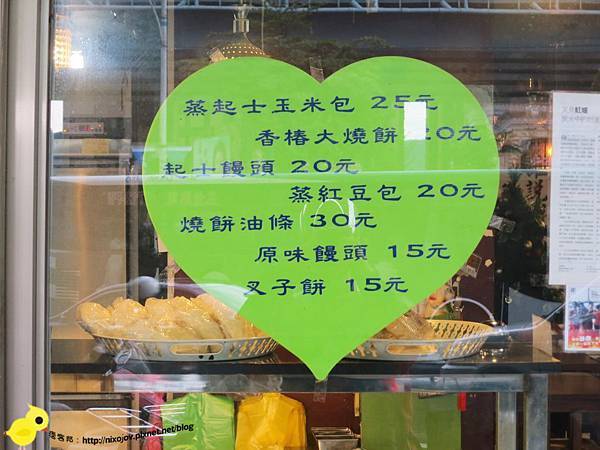 蒸起士玉米包 25元
香椿大燒餅 20元
起士饅頭 20元
蒸紅豆包 20元
燒餅油條 30元
原味饅頭 15元
叉子餅 15元
痞客邦：http://nixojov.pixnet.net/blog